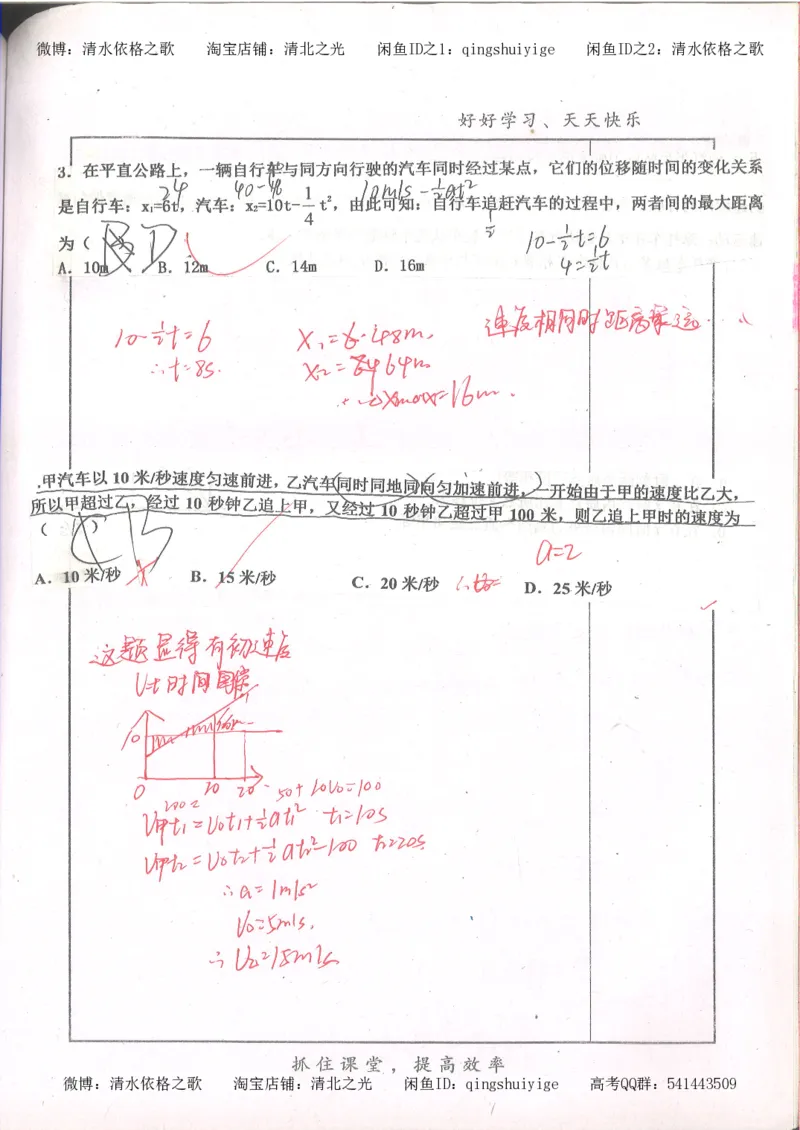 微博：清水依格之歌 淘宝店铺：清北之光 闲鱼ID之1：qingshuiyige 闲鱼ID之2：清水依格之歌
好好学习、天天快乐
3．在平直公路上，一辆自行车与同方向行驶的汽车同时经过某点，它们的位移随时间的变化关系
24 40-48 10m/s-½at²
是自行车：x₁=6t，汽车：x₂=10t-1/4 t²，由此可知：自行车追赶汽车的过程中，两者间的最大距离
为（ D
10-½t=6
4=½t
A．10m B．12m C．14m D．16m
10-½t=6
∴t=8s.
X₁=6·48m,
X₂=64m
Xmax=16m.
速度相同时距离最远
.甲汽车以 10 米/秒速度匀速前进，乙汽车同时同地同向匀加速前进，一开始由于甲的速度比乙大，
所以甲超过乙，经过 10 秒钟乙追上甲，又经过 10 秒钟乙超过甲 100 米，则乙追上甲时的速度为
（ ）
C B
a=2
A．10 米/秒 B．15 米/秒 C．20 米/秒 D．25 米/秒
这题显得有初速度
V-t时间图像
10
100m
0 10 20
50+10V₀=100
200=
V甲t₁=V₀t₁+½at₁² t₁=10s
V甲t₂=V₀t₂+½at₂²-100 t₂=20s
∴a=1m/s²
V₀=5m/s,
∴V乙=15m/s
抓住课堂，提高效率
微博：清水依格之歌 淘宝店铺：清北之光 闲鱼ID：qingshuiyige 高考QQ群：541443509